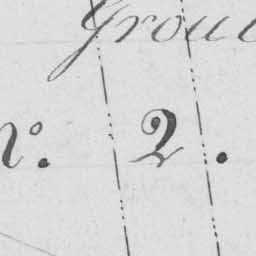 Grou
º. 2.